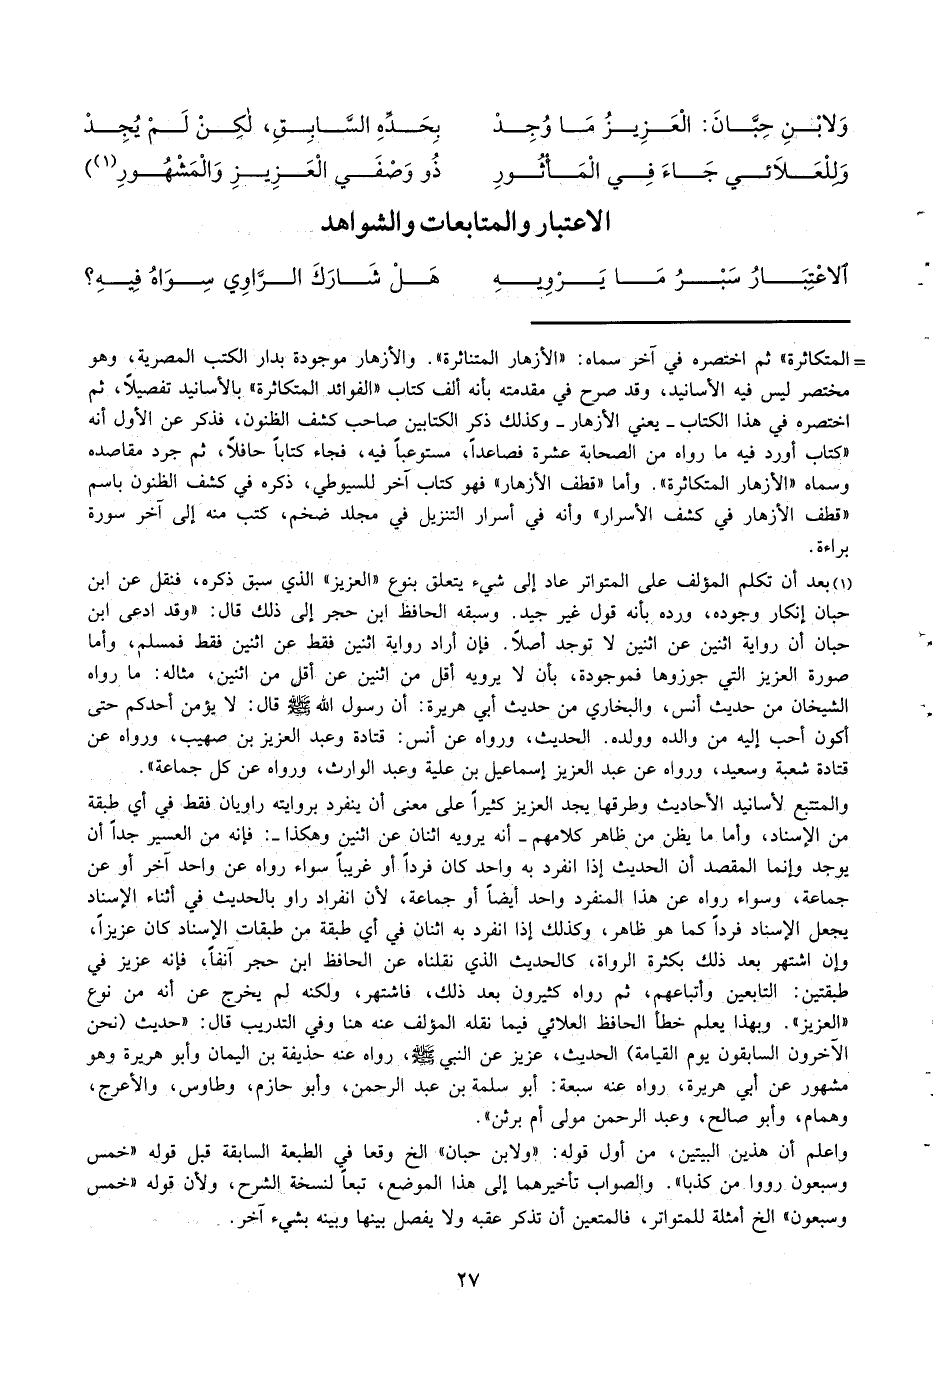 وَلابْنِ حِبَّانَ: الْعَزِيزُ مَا وُجِدْ بِحَدِّهِ السَّابِقِ، لٰكِنْ لَمْ يُجِدْ
وَلِلْعَلَائِي جَاءَ فِي الْمَأْثُورِ ذُو وَصْفَي الْعَزِيزِ وَالْمَشْهُورِ(١)
الاعتبار والمتابعات والشواهد
اَلاعْتِبَارُ سَبْرُ مَا يَرْوِيهِ هَلْ شَارَكَ الرَّاوِي سِوَاهُ فِيهِ؟
= المتكاثرة» ثم اختصره في آخر سماه: «الأزهار المتناثرة». والأزهار موجودة بدار الكتب المصرية، وهو
مختصر ليس فيه الأسانيد، وقد صرح في مقدمته بأنه ألف كتاب «الفوائد المتكاثرة» بالأسانيد تفصيلاً، ثم
اختصره في هذا الكتاب ـ يعني الأزهار ـ وكذلك ذكر الكتابين صاحب كشف الظنون، فذكر عن الأول أنه
«كتاب أورد فيه ما رواه من الصحابة عشرة فصاعداً، مستوعباً فيه، فجاء كتاباً حافلاً، ثم جرد مقاصده
وسماه «الأزهار المتكاثرة». وأما «قطف الأزهار» فهو كتاب آخر للسيوطي، ذكره في كشف الظنون باسم
«قطف الأزهار في كشف الأسرار» وأنه في أسرار التنزيل في مجلد ضخم، كتب منه إلى آخر سورة
براءة.
(١) بعد أن تكلم المؤلف على المتواتر عاد إلى شيء يتعلق بنوع «العزيز» الذي سبق ذكره، فنقل عن ابن
حبان إنكار وجوده، ورده بأنه قول غير جيد. وسبقه الحافظ ابن حجر إلى ذلك قال: «وقد ادعى ابن
حبان أن رواية اثنين عن اثنين لا توجد أصلاً. فإن أراد رواية اثنين فقط عن اثنين فقط فمسلم، وأما
صورة العزيز التي جوزوها فموجودة، بأن لا يرويه أقل من اثنين عن أقل من اثنين، مثاله: ما رواه
الشيخان من حديث أنس، والبخاري من حديث أبي هريرة: أن رسول الله ﷺ قال: لا يؤمن أحدكم حتى
أكون أحب إليه من والده وولده. الحديث، ورواه عن أنس: قتادة وعبد العزيز بن صهيب، ورواه عن
قتادة شعبة وسعيد، ورواه عن عبد العزيز إسماعيل بن علية وعبد الوارث، ورواه عن كل جماعة».
والمتتبع لأسانيد الأحاديث وطرقها يجد العزيز كثيراً على معنى أن ينفرد بروايته راويان فقط في أي طبقة
من الإسناد، وأما ما يظن من ظاهر كلامهم ـ أنه يرويه اثنان عن اثنين وهكذا ـ: فإنه من العسير جداً أن
يوجد وإنما المقصد أن الحديث إذا انفرد به واحد كان فرداً أو غريباً سواء رواه عن واحد آخر أو عن
جماعة، وسواء رواه عن هذا المنفرد واحد أيضاً أو جماعة، لأن انفراد راو بالحديث في أثناء الإسناد
يجعل الإسناد فرداً كما هو ظاهر، وكذلك إذا انفرد به اثنان في أي طبقة من طبقات الإسناد كان عزيزاً،
وإن اشتهر بعد ذلك بكثرة الرواة، كالحديث الذي نقلناه عن الحافظ ابن حجر آنفاً، فإنه عزيز في
طبقتين: التابعين وأتباعهم، ثم رواه كثيرون بعد ذلك، فاشتهر، ولكنه لم يخرج عن أنه من نوع
«العزيز». وبهذا يعلم خطأ الحافظ العلائي فيما نقله المؤلف عنه هنا وفي التدريب قال: «حديث (نحن
الآخرون السابقون يوم القيامة) الحديث، عزيز عن النبي ﷺ، رواه عنه حذيفة بن اليمان وأبو هريرة وهو
مشهور عن أبي هريرة، رواه عنه سبعة: أبو سلمة بن عبد الرحمن، وأبو حازم، وطاوس، والأعرج،
وهمام، وأبو صالح، وعبد الرحمن مولى أم برثن».
واعلم أن هذين البيتين، من أول قوله: «ولابن حبان» الخ وقعا في الطبعة السابقة قبل قوله «خمس
وسبعون رووا من كذبا». والصواب تأخيرهما إلى هذا الموضع، تبعاً لنسخة الشرح، ولأن قوله «خمس
وسبعون» الخ أمثلة للمتواتر، فالمتعين أن تذكر عقبه ولا يفصل بينها وبينه بشيء آخر.
٢٧